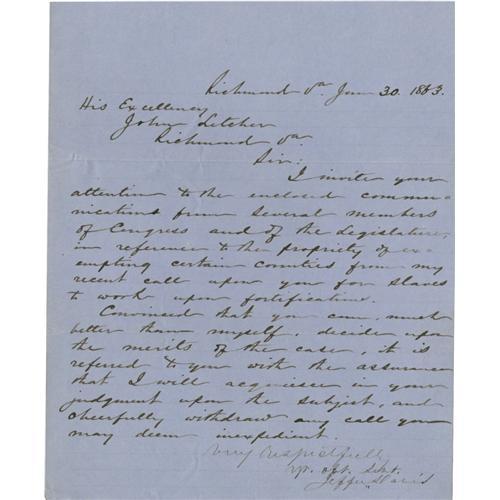 Richmond Va. Jan 30. 1863.
His Excellency
John Letcher
Richmond Va.
Sir:
I invite your
attention to the enclosed commu-
nications from several members
of Congress and of the Legislature,
in reference to the propriety of ex-
empting certain counties from my
recent call upon you for slaves
to work upon fortifications.
Convinced that you can, much
better than myself, decide upon
the merits of the case, it is
referred to you with the assurance
that I will acquiesce in your
judgment upon the subject, and
cheerfully withdraw any call you
may deem inexpedient.
Very Respectfully
Yr. obt. Svt.
Jeffn Davis